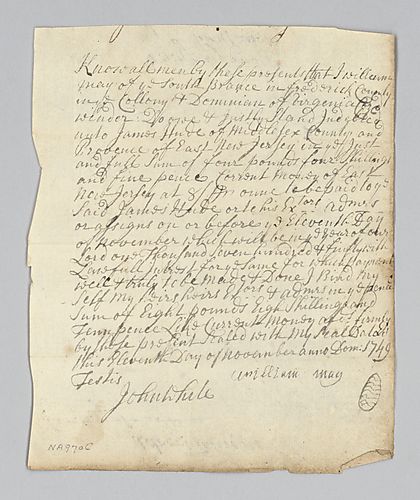 Know all men by these presents that I william
may of ye South Brance in frederick County
in ye Collony & Dominian of Virgenia
windor Do owe & Justly Stand Indepted
unto James Hude of Middlesex County and
Provence of East New Jersey in ye Just
and full Sum of four pounds four Shillings
and fine pence Corrent Money of East
New Jersey at 8/ pr ounc to be paid to ye
Said James Hude or to his Exors admrs
or assigns on or before ye Eleventh Day
of November which will be in ye year of our
Lord one thousand Seven hundred & fifty with
Lawfull Intrest for ye Same for which payment
well & truly to be made & Done I Bind My
Self My heirs Exors & admrs in ye penal
Sum of Eight Pounds Eigh Shillings and
Tenn pence Like Currant Money as firmly
by these present Sealed with My Seal Dated
this Eleventh Day of November anno Dom: 1749
Testis william may
John While
NA970C